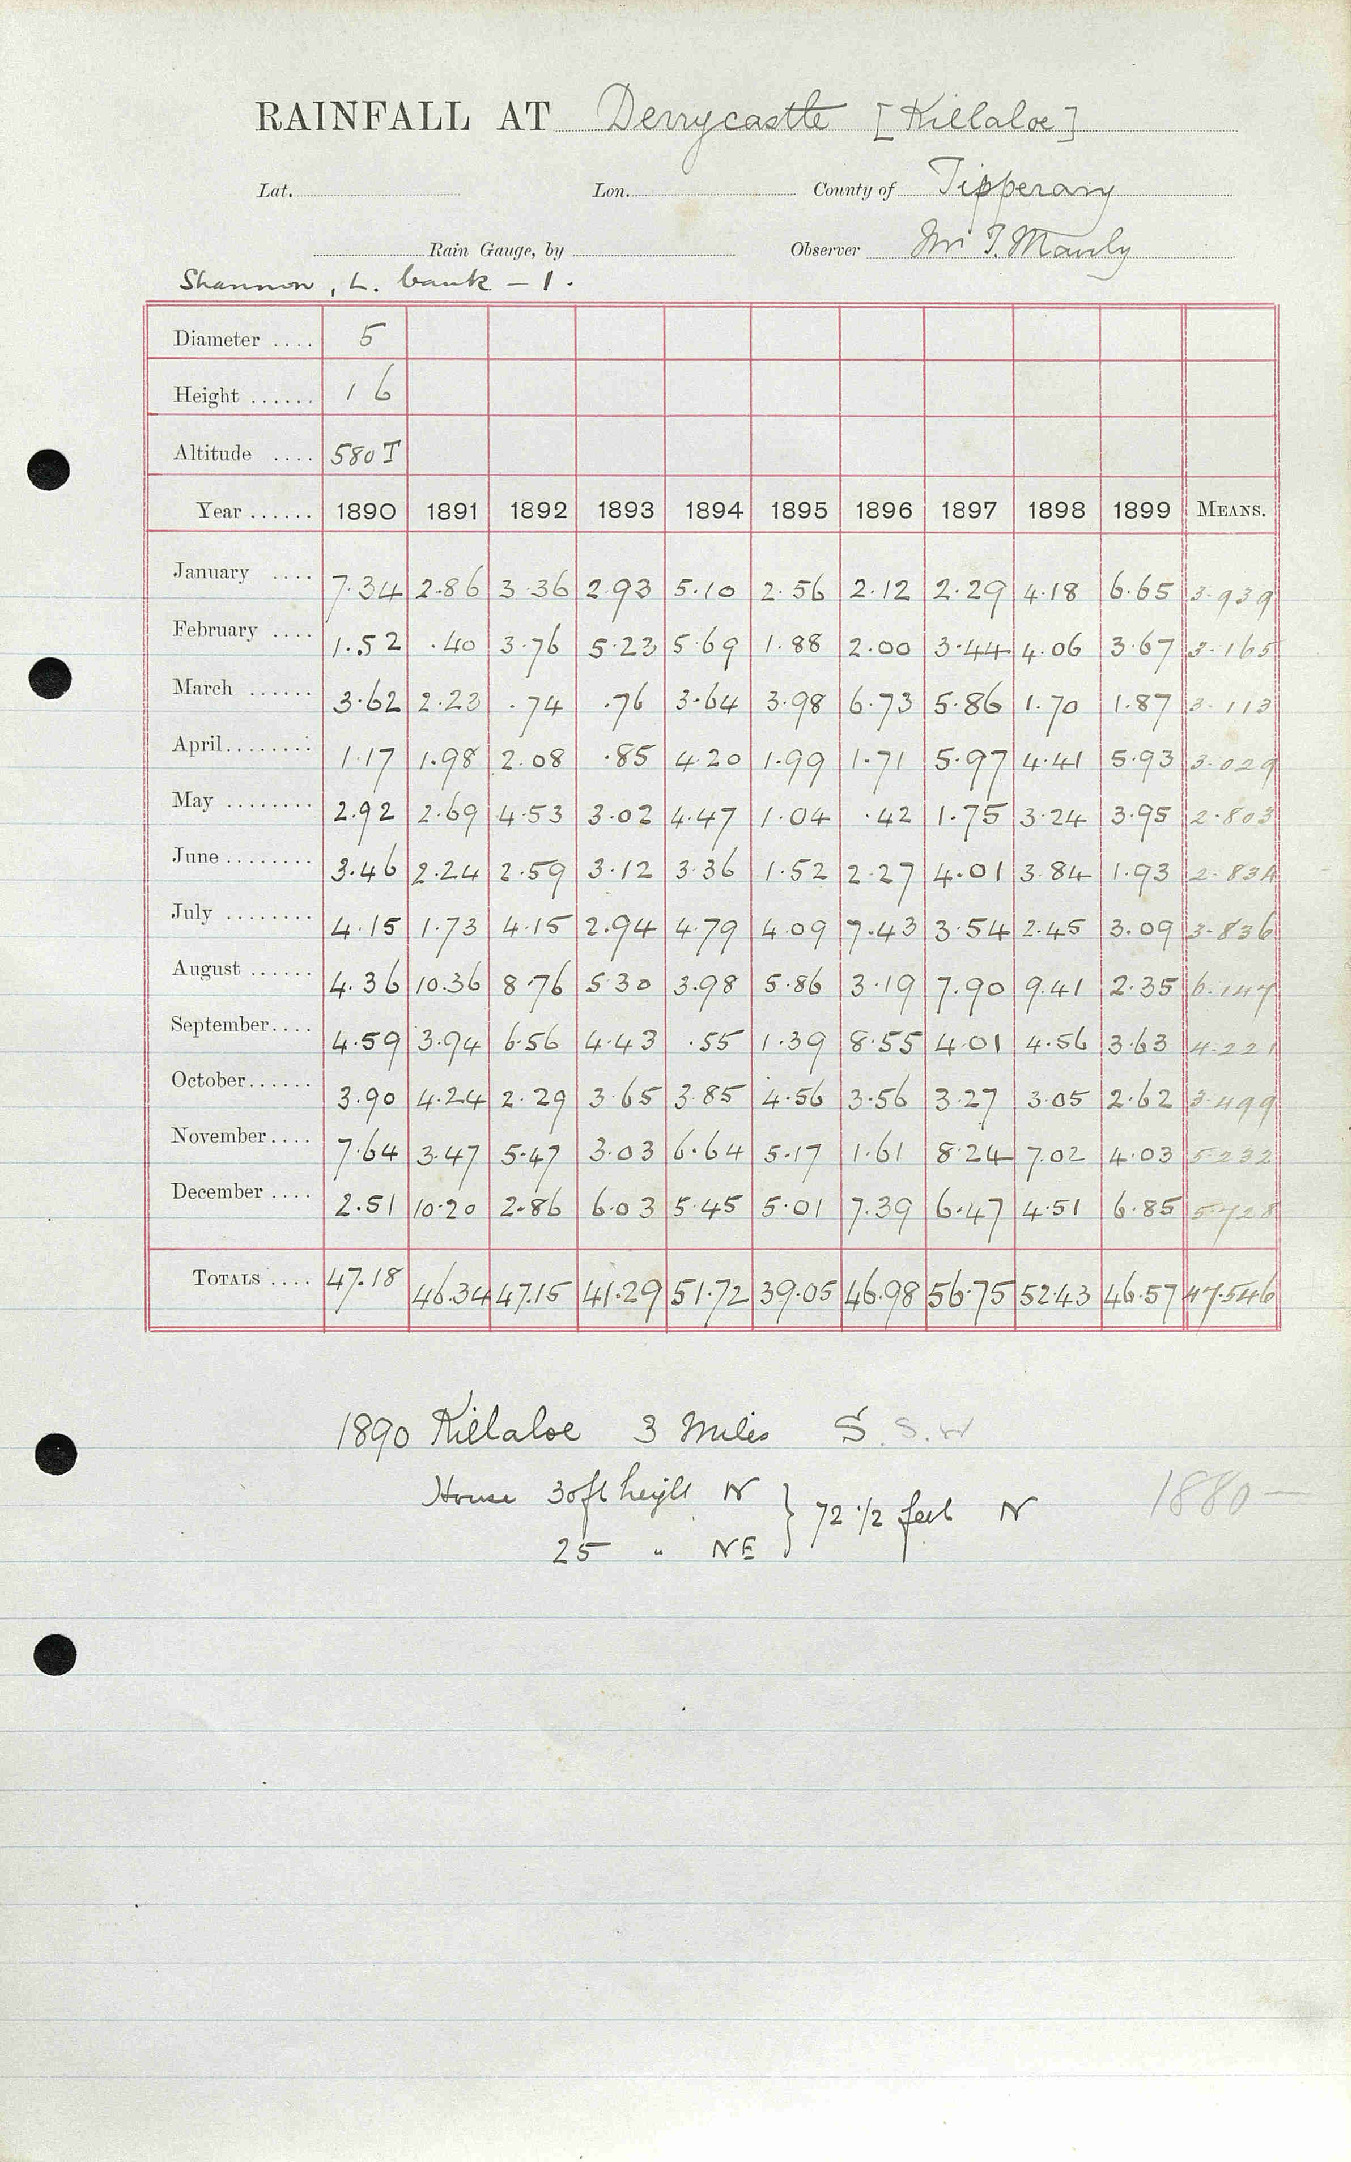 RAINFALL AT Derrycastle [Killaloe]
Lat. Lon. County of Tipperary
Rain Gauge, by Observer Mr T. Manly
Shannon, L. bank - 1.
Diameter .... 5
Height ...... 1 6
Altitude .... 580 T
Year ...... 1890 1891 1892 1893 1894 1895 1896 1897 1898 1899 MEANS.
January .... 7.34 2.86 3.36 2.93 5.10 2.56 2.12 2.29 4.18 6.65 3.939
February .... 1.52 .40 3.76 5.23 5.69 1.88 2.00 3.44 4.06 3.67 3.165
March ...... 3.62 2.23 .74 .76 3.64 3.98 6.73 5.86 1.70 1.87 3.113
April........ 1.17 1.98 2.08 .85 4.20 1.99 1.71 5.97 4.41 5.93 3.029
May ........ 2.92 2.69 4.53 3.02 4.47 1.04 .42 1.75 3.24 3.95 2.803
June ........ 3.46 2.24 2.59 3.12 3.36 1.52 2.27 4.01 3.84 1.93 2.834
July ........ 4.15 1.73 4.15 2.94 4.79 4.09 7.43 3.54 2.45 3.09 3.836
August ...... 4.36 10.36 8.76 5.30 3.98 5.86 3.19 7.90 9.41 2.35 6.147
September.... 4.59 3.94 6.56 4.43 .55 1.39 8.55 4.01 4.56 3.63 4.221
October...... 3.90 4.24 2.29 3.65 3.85 4.56 3.56 3.27 3.05 2.62 3.499
November.... 7.64 3.47 5.47 3.03 6.64 5.17 1.61 8.24 7.02 4.03 5.232
December .... 2.51 10.20 2.86 6.03 5.45 5.01 7.39 6.47 4.51 6.85 5.728
TOTALS .... 47.18 46.34 47.15 41.29 51.72 39.05 46.98 56.75 52.43 46.57 47.546
1890 Killaloe 3 Miles S. S. W
House 30 ft height N } 72 1/2 feet N 1880 —
25 " NE